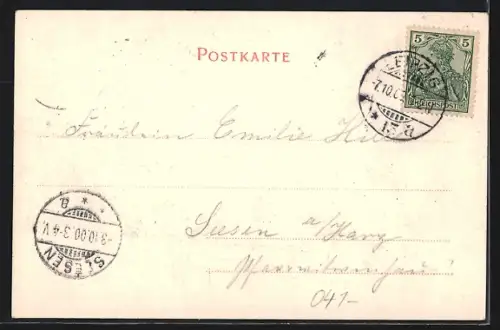 POSTKARTE
5 5
REICHSPOST
LEIPZIG
7.10.0
* 13. a.
Fräulein Emilie
Seesen a/Harz
Pfarrwitwenhaus
041-
SEESEN
-8.10.00.3-4 V.
* * a.